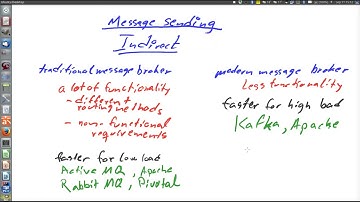 Message sending
Indirect
traditional message broker
a lot of functionality
- different
routing methods
- non-functional
requirements
faster for low load
Active MQ, Apache
Rabbit MQ, Pivotal
modern message broker
Less functionality
faster for high load
Kafka, Apache